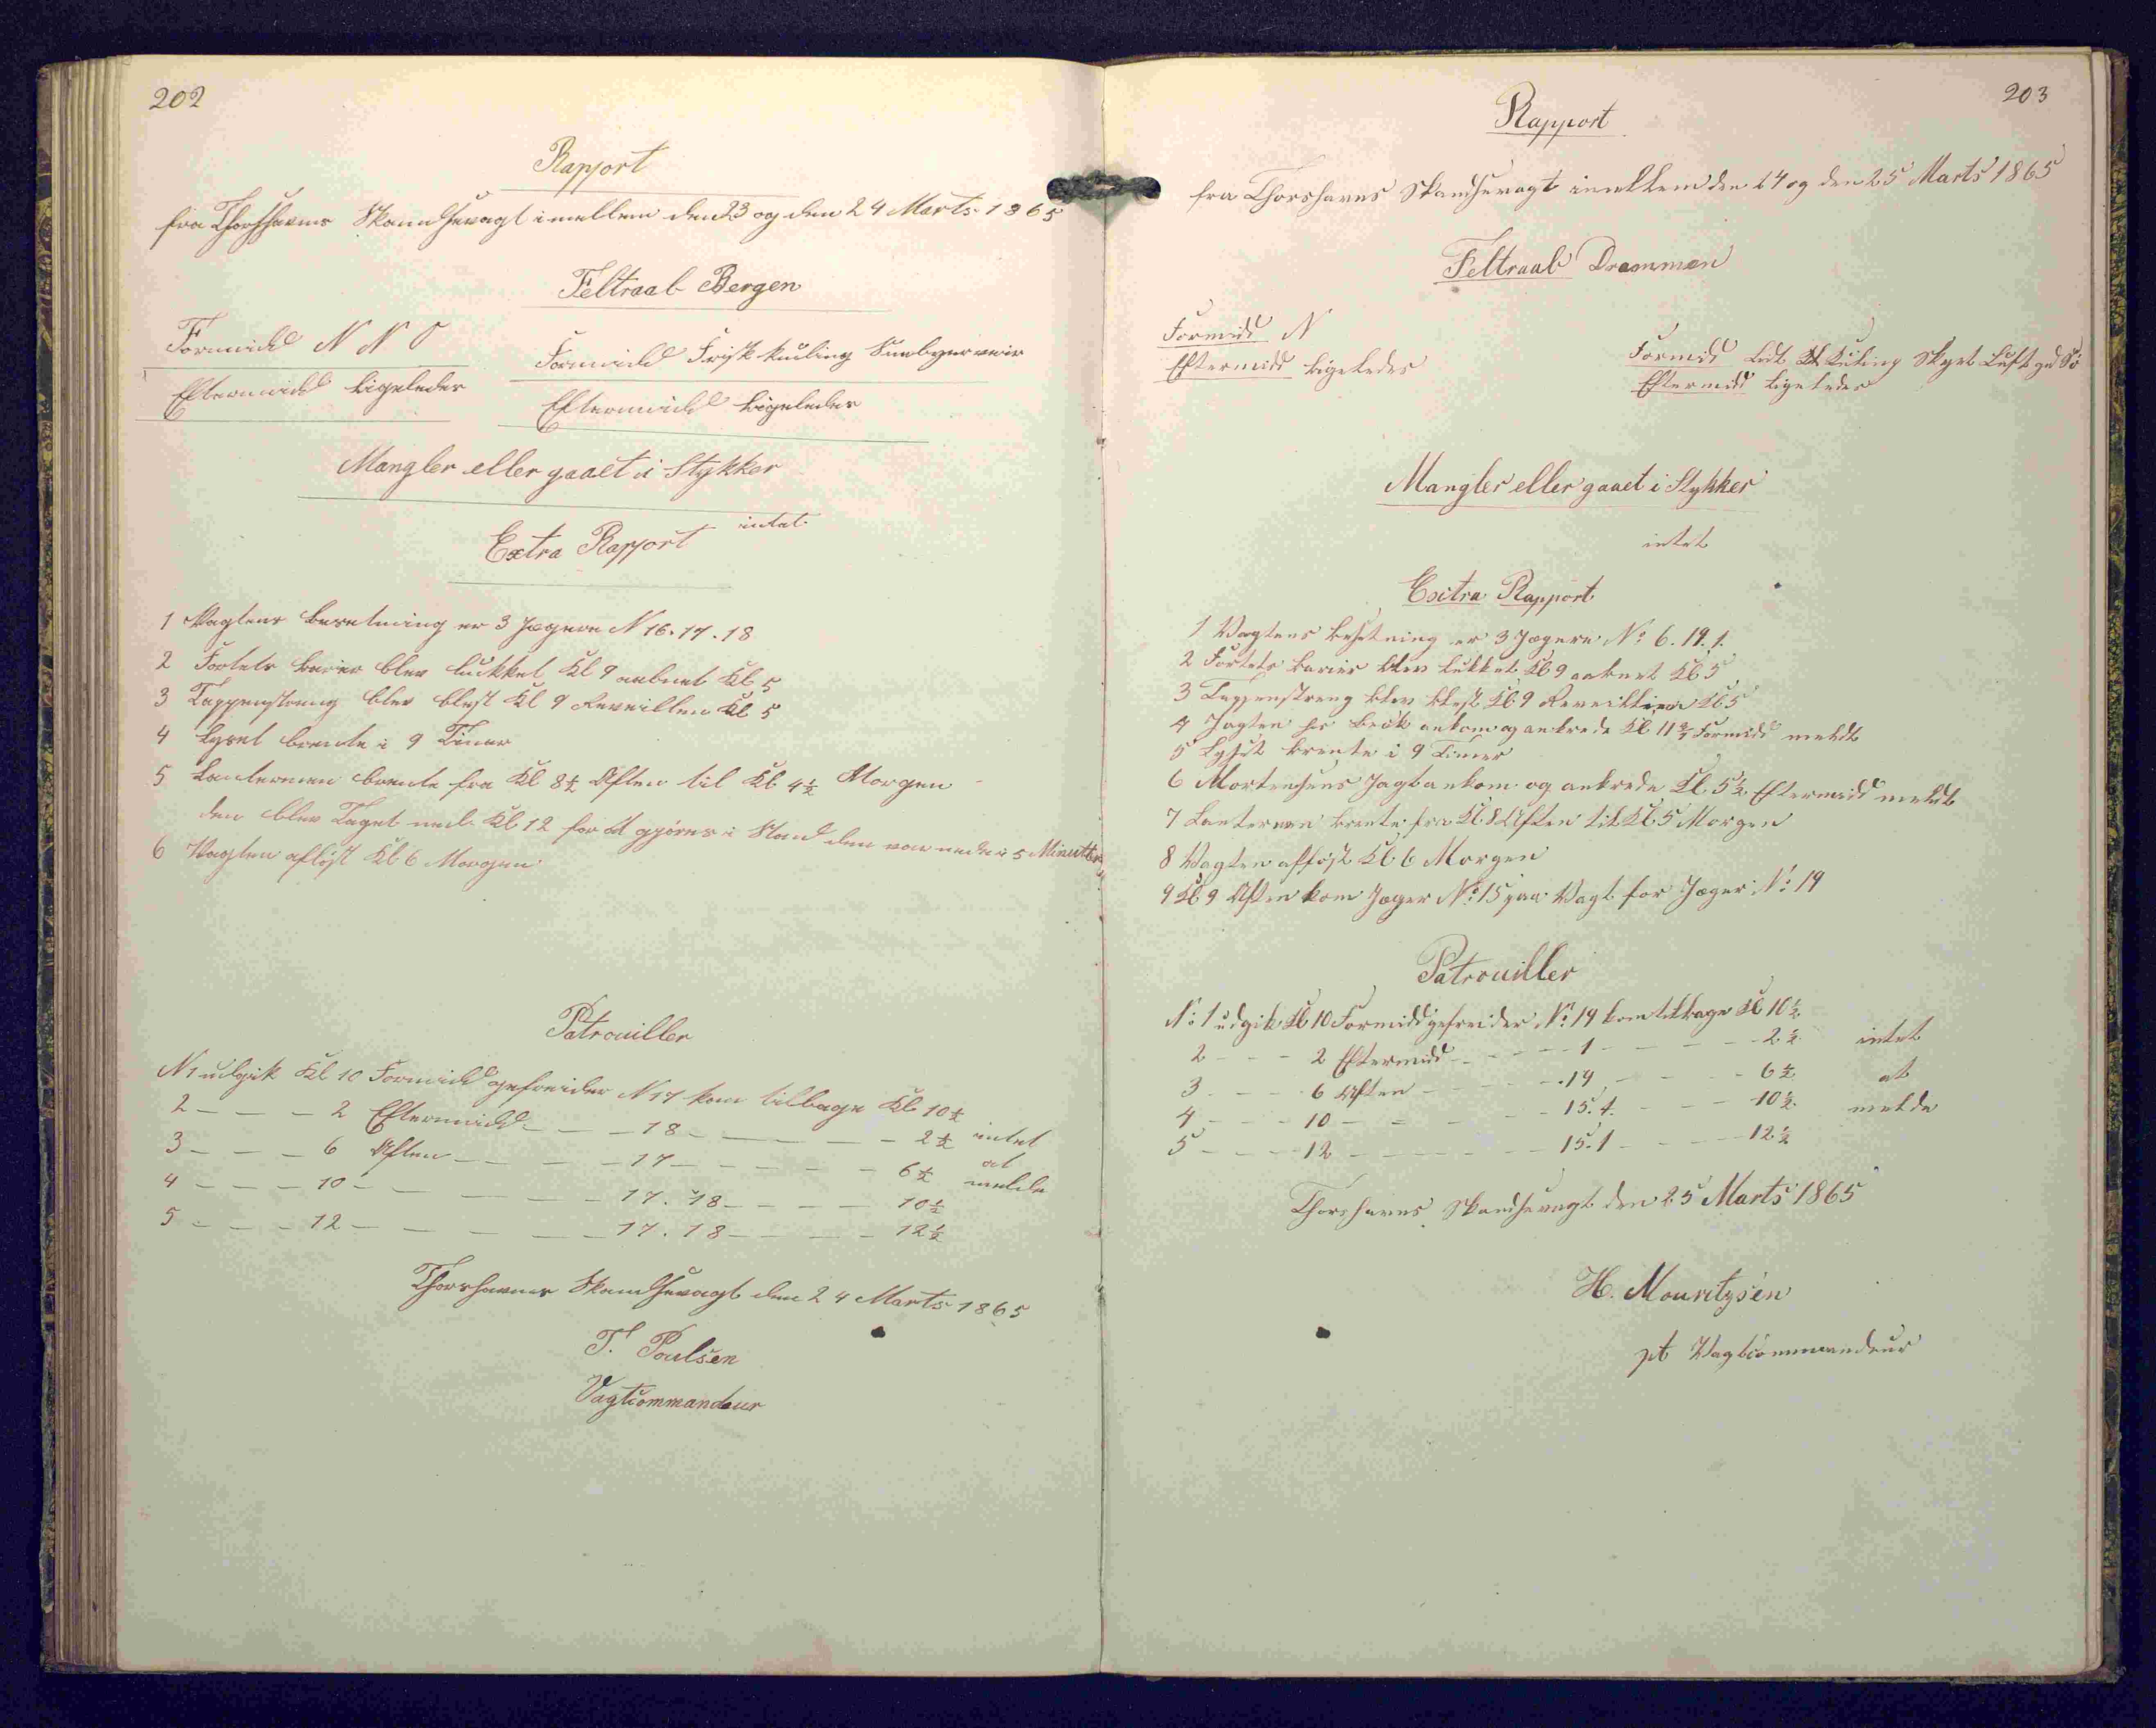 202
Rapport
fra Thorshavns Skandsevagt imellem den 23 og den 24 Marts 1865
Feltraab Bergen
Formidd N N O
Eftermidd ligeledes
Formidd Frisk kuling
Eftermidd ligeledes
Mangler eller gaaet i Stykker
intet
Extra Rapport
1 Vagtens besetning er 3 Jægere N 16. 17. 18
2 Fortets barier blev lukket Kl 9 aabnet Kl 5
3 Tappenstreng blev blest Kl 9 Reveillen Kl 5
4 Lyset brente i 9 Timer
5 Lanternen brente fra Kl 8½ Aften til Kl 4½ Morgen
den blev Taget ned Kl 12 for at gjøres i Stand den var nede i 5 Minutter
6 Vagten afløst Kl 6 Morgen
Patrouiller
N 1 udgik Kl 10 Formidd gefreider N 17 kom tilbage Kl 10½
2 - - - 2 Eftermidd - - - 18 - - - - - 2½ intet
3 - - - 6 Aften - - - - 17 - - - - - 6½ at
4 - - - 10 - - - - - - 17. 18 - - - - 10½ melde
5 - - - 12 - - - - - - 17. 18 - - - - 12½
Thorshavns Skandsevagt den 24 Marts 1865
T. Poulsen
Vagtcommandeur
203
Rapport
fra Thorshavns Skandsevagt imellem den 24 og den 25 Marts 1865
Feltraab Drammen
Formidd N
Eftermidd ligeledes
Formidd Kuling Skyet Luft
Eftermidd ligeledes
Mangler eller gaaet i Stykker
intet
Exitra Rapport
1 Vagtens besetning er 3 Jægere No 6. 19. 1.
2 Fortets barier blev lukket Kl 9 aabnet Kl 5
3 Tappenstreng blev blest Kl 9 Reveillien Kl 5
4 Jagten ankom og ankrede Kl 11½ Formidd meldt
5 Lyset brente i 9 Timer
6 Mortensens Jagt ankom og ankrede Kl. 5½ Eftermidd meldt
7 Lanternen brente fra Kl 8 Aften til Kl 5 Morgen
8 Vagten afløst Kl 6 Morgen
9 Kl 9 Aften kom Jæger No 15 paa Vagt for Jæger No 19
Patrouiller
No 1 udgik Kl 10 Formidd gefreider No 19 kom tilbage Kl 10½
2 - - - 2 Eftermidd - - - - - 1 - - - - - 2½ intet
3 - - - 6 Aften - - - - - 19 - - - - 6½ at
4 - - - 10 - - - - - 15. 1. - - - 10½ melde
5 - - - 12 - - - - - - 15. 1 - - - - 12½
Thorshavns Skandsevagt den 25 Marts 1865
H. Mouritzsen
pt Vagtcommandeur